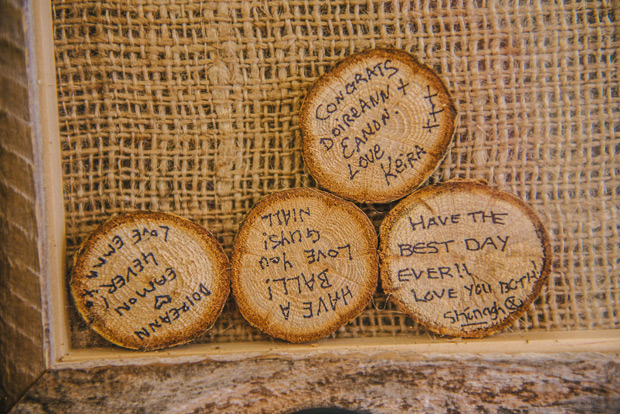 CONGRATS
DOIREANN +
EANON.
LOVE
KEIRA
DOIREANN
♡
EAMON
4EVER!
LOVE EMMA
HAVE A
BALL!
LOVE YOU
GUYS!
NIALL
HAVE THE
BEST DAY
EVER!!
LOVE YOU BOTH!